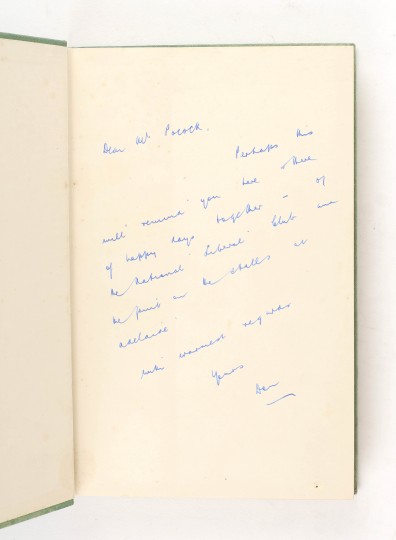 Dear Mr Pocock.
Perhaps this
will remind you here & there
of happy days together – of
the National Liberal Club and
the pub in the stalls at
Adelaide.
with warmest regards
Yours
Don